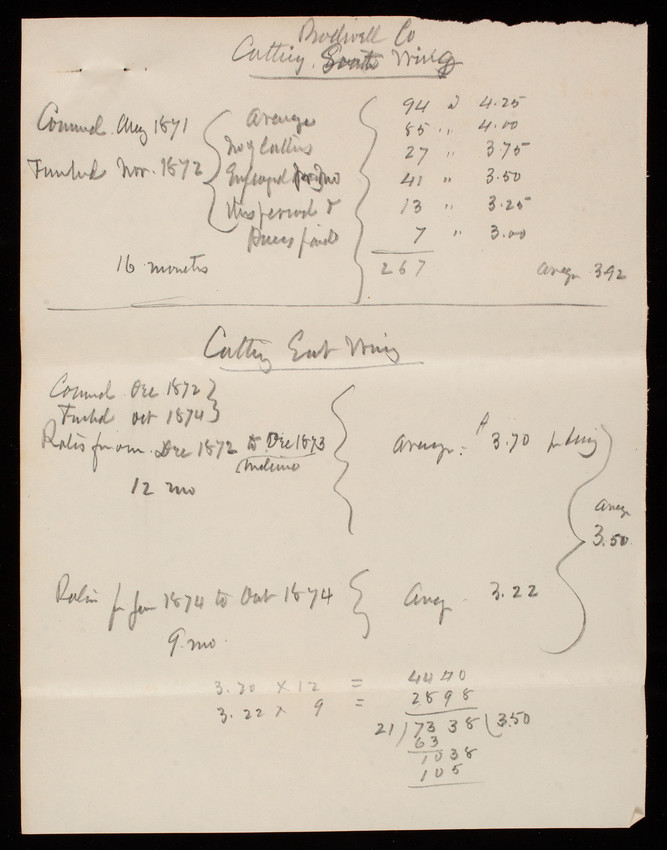 Bodwell Co
Cutting South Wing
Commd. Aug 1871
Finished Nov. 1872
16 months
Average
No of Cutters
Employed
this period &
Prices paid
94 a 4.25
85 " 4.00
27 " 3.75
41 " 3.50
13 " 3.25
7 " 3.00
267
averge 392
Cutting East Wing
Commd Dec 1872
Finished Oct 1874
Rates from Dec 1872 to Dec 1873
inclusive
12 mo
average. 3.70 per day
averge
3.50
Rates fr Jan 1874 to Oct 1874
9. mo.
Averge 3.22
3.70 x 12 = 4440
3.22 x 9 = 2898
21)7338(3.50
63
1038
105